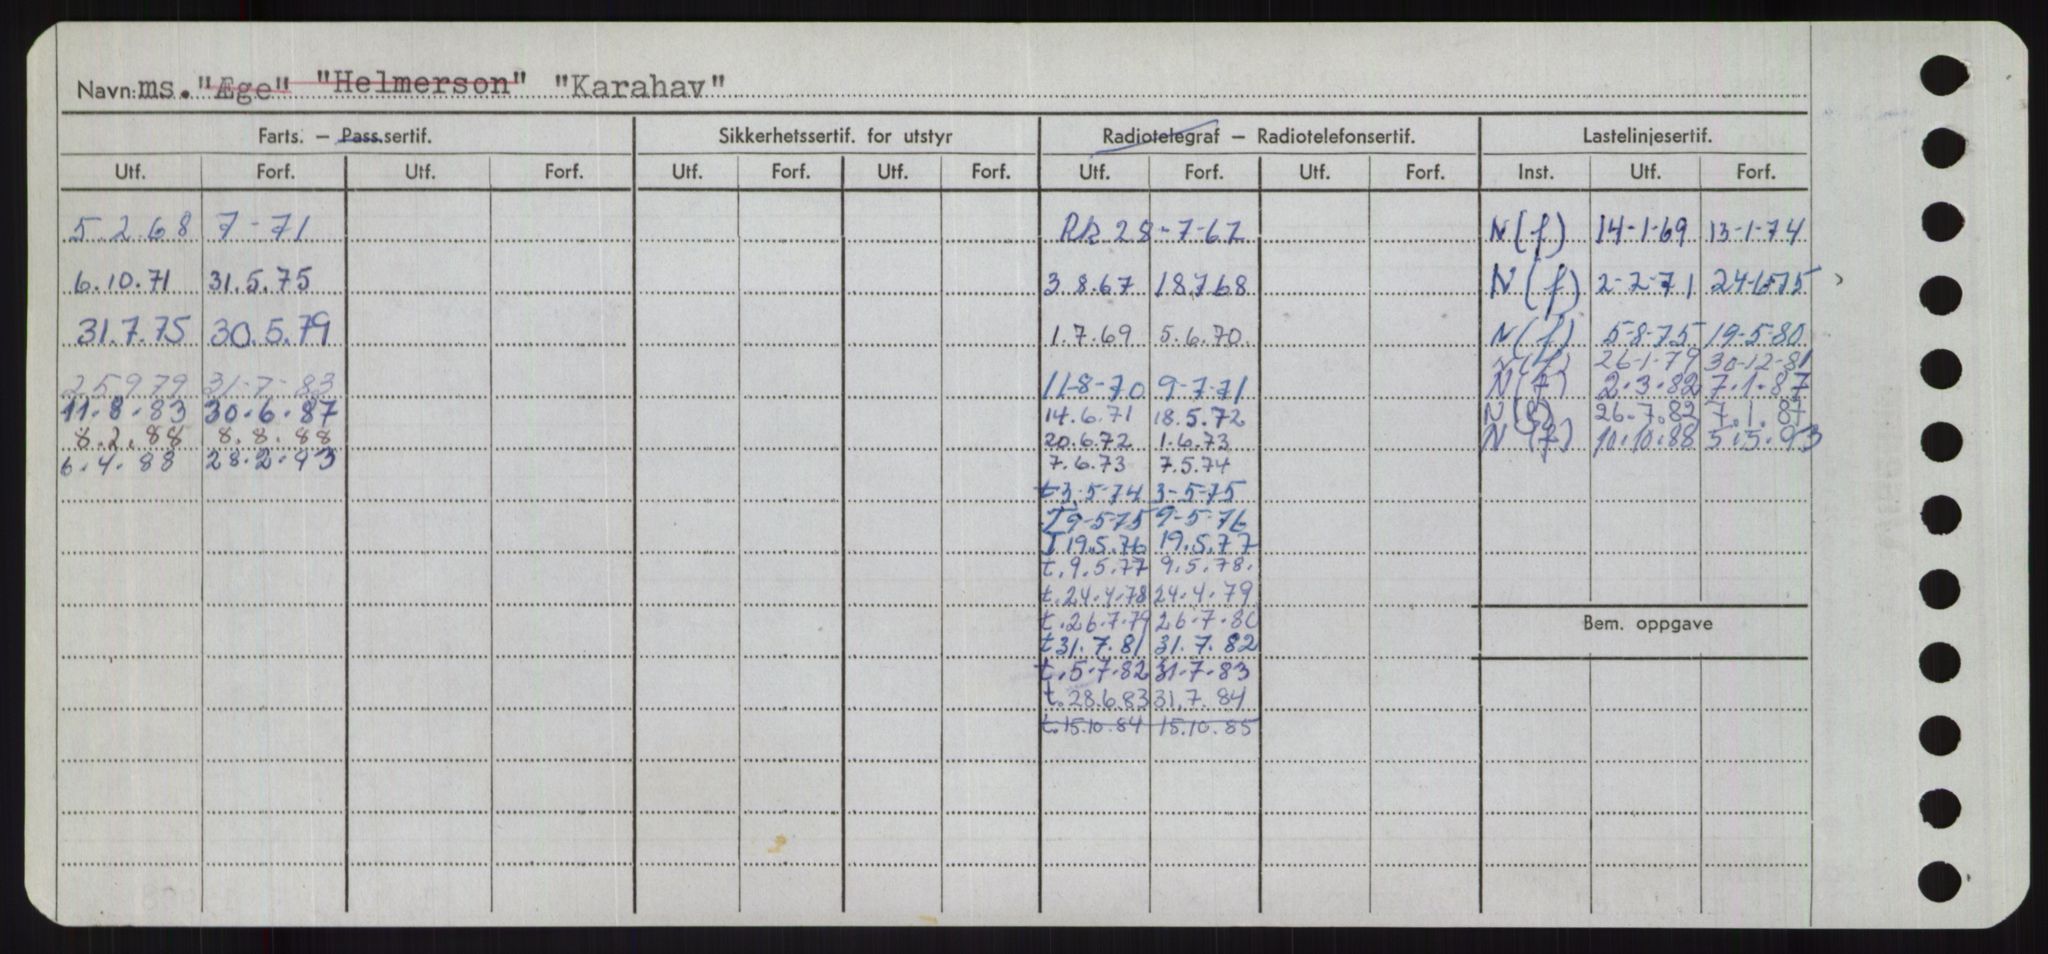 Navn: ms. "Æge" "Helmerson" "Karahav"
Farts. – Pass.sertif. Sikkerhetssertif. for utstyr Radiotelegraf – Radiotelefonsertif. Lastelinjesertif.
Utf. Forf. Utf. Forf. Utf. Forf. Utf. Forf. Utf. Forf. Utf. Forf. Inst. Utf. Forf.
5.2.68 7-71 28-7-67 N(f) 14-1-69 13-1-74
6.10.71 31.5.75 3.8.67 18768 N(f) 2-2-71 24-6-75
31.7.75 30.5.79 1.7.69 5.6.70 N(f) 5-8-75 19-5-80
N(f) 26-1-79 30-12-81
25979 31-7-83 11-8-70 9-7-71 N(f) 2.3.82 7.1.87
11.8.83 30.6.87 14.6.71 18.5.72 N(f) 26.7.82 7.1.87
8.2.88 8.8.88 20.6.72 1.6.73 N(f) 10.10.88 5.5.93
6.4.88 28.2.93 7.6.73 7.5.74
t3.5-74 3-5-75
T9-5-75 9-5-76
T19.5.76 19.5.77
t.9.5.77 9.5.78.
t.24.4.78 24.4.79
t.26.7.79 26.7.80
t31.7.81 31.7.82
t.5.7.82 31.7.83
t.28.6.83 31.7.84
t.15.10.84 15.10.85
Bem. oppgave